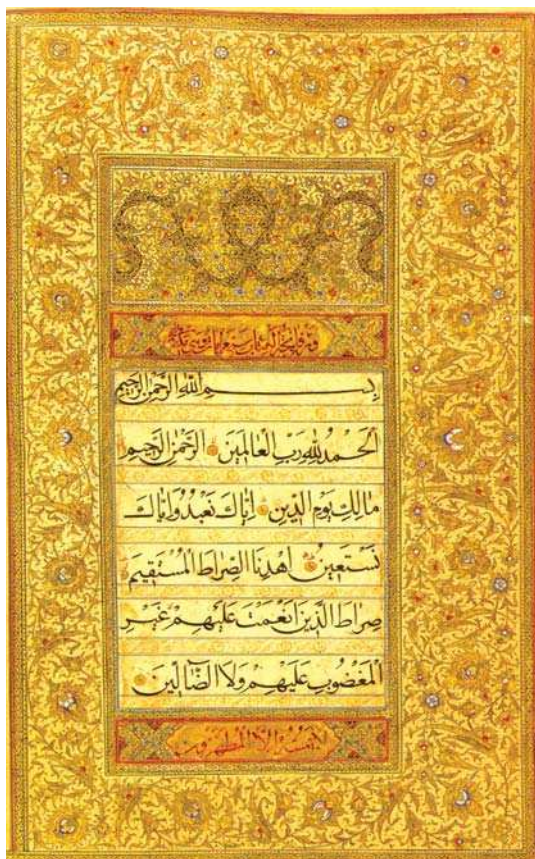 سورة فاتحة الكتاب سبع آيات
بِسْمِ اللهِ الرَّحْمٰنِ الرَّحِيمِ
اَلْحَمْدُ لِلّٰهِ رَبِّ الْعَالَمِينَ الرَّحْمٰنِ الرَّحِيمِ
مَالِكِ يَوْمِ الدِّينِ اِيَّاكَ نَعْبُدُ وَاِيَّاكَ
نَسْتَعِينُ اِهْدِنَا الصِّرَاطَ الْمُسْتَقِيمَ
صِرَاطَ الَّذِينَ اَنْعَمْتَ عَلَيْهِمْ غَيْرِ
الْمَغْضُوبِ عَلَيْهِمْ وَلَا الضَّالِّينَ
لا يمسه الا المطهرون